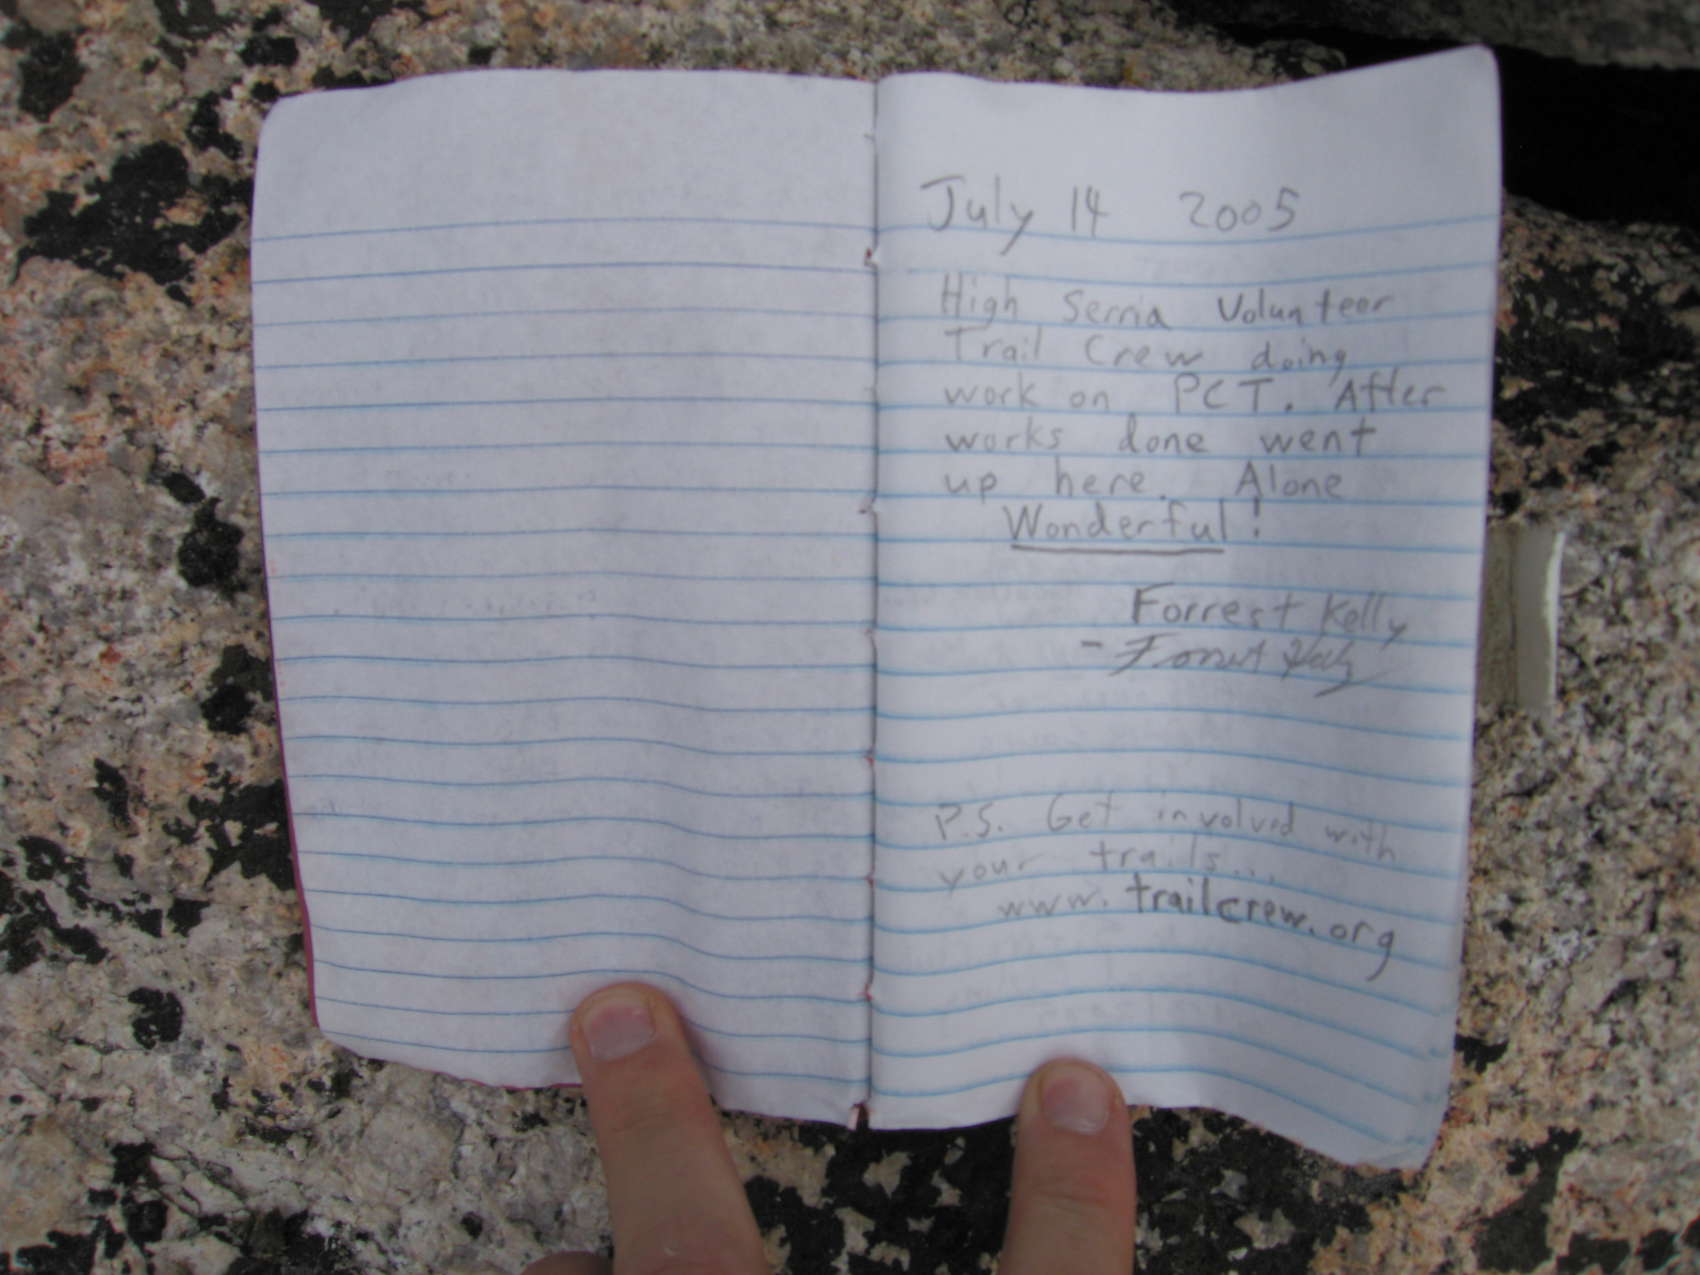 July 14 2005
High Serria Volunteer
Trail Crew doing
work on PCT. After
works done went
up here. Alone
Wonderful!
Forrest Kelly
- Forrest Kelly
P.S. Get involved with
your trails...
www.trailcrew.org